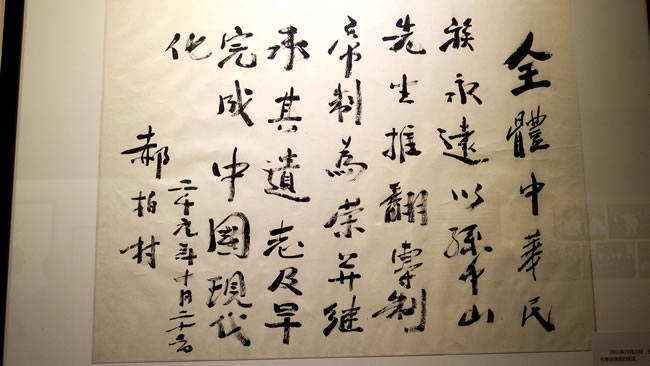 全體中華民
族永遠以孫中山
先生推翻專制
帝制為榮并繼
承其遺志及早
完成中國現代
化
郝柏村
十月二十